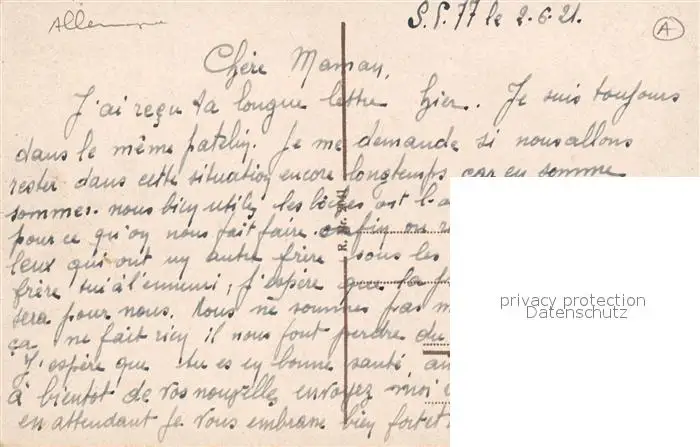 Allemagne
S.P. 77 le 2.6.21.
A
Chère Maman,
J'ai reçu ta longue lettre hier. Je suis toujours
dans le même patelin. Je me demande si nous allons
rester dans cette situation encore longtemps car en somme
sommes-nous bien utiles, les boches ont l'a
pour ce qu'on nous fait faire. enfin on
ceux qui ont un autre frère sous les
frère tué à l'ennemi, j'espère que la
sera pour nous. Nous ne sommes pas m
ça ne fait rien il nous font perdre du
J'espère que tu es en bonne santé, au
à bientot de vos nouvelles envoyez moi
en attendant je vous embrasse bien fort et
R. Nr. 2041
privacy protection
Datenschutz